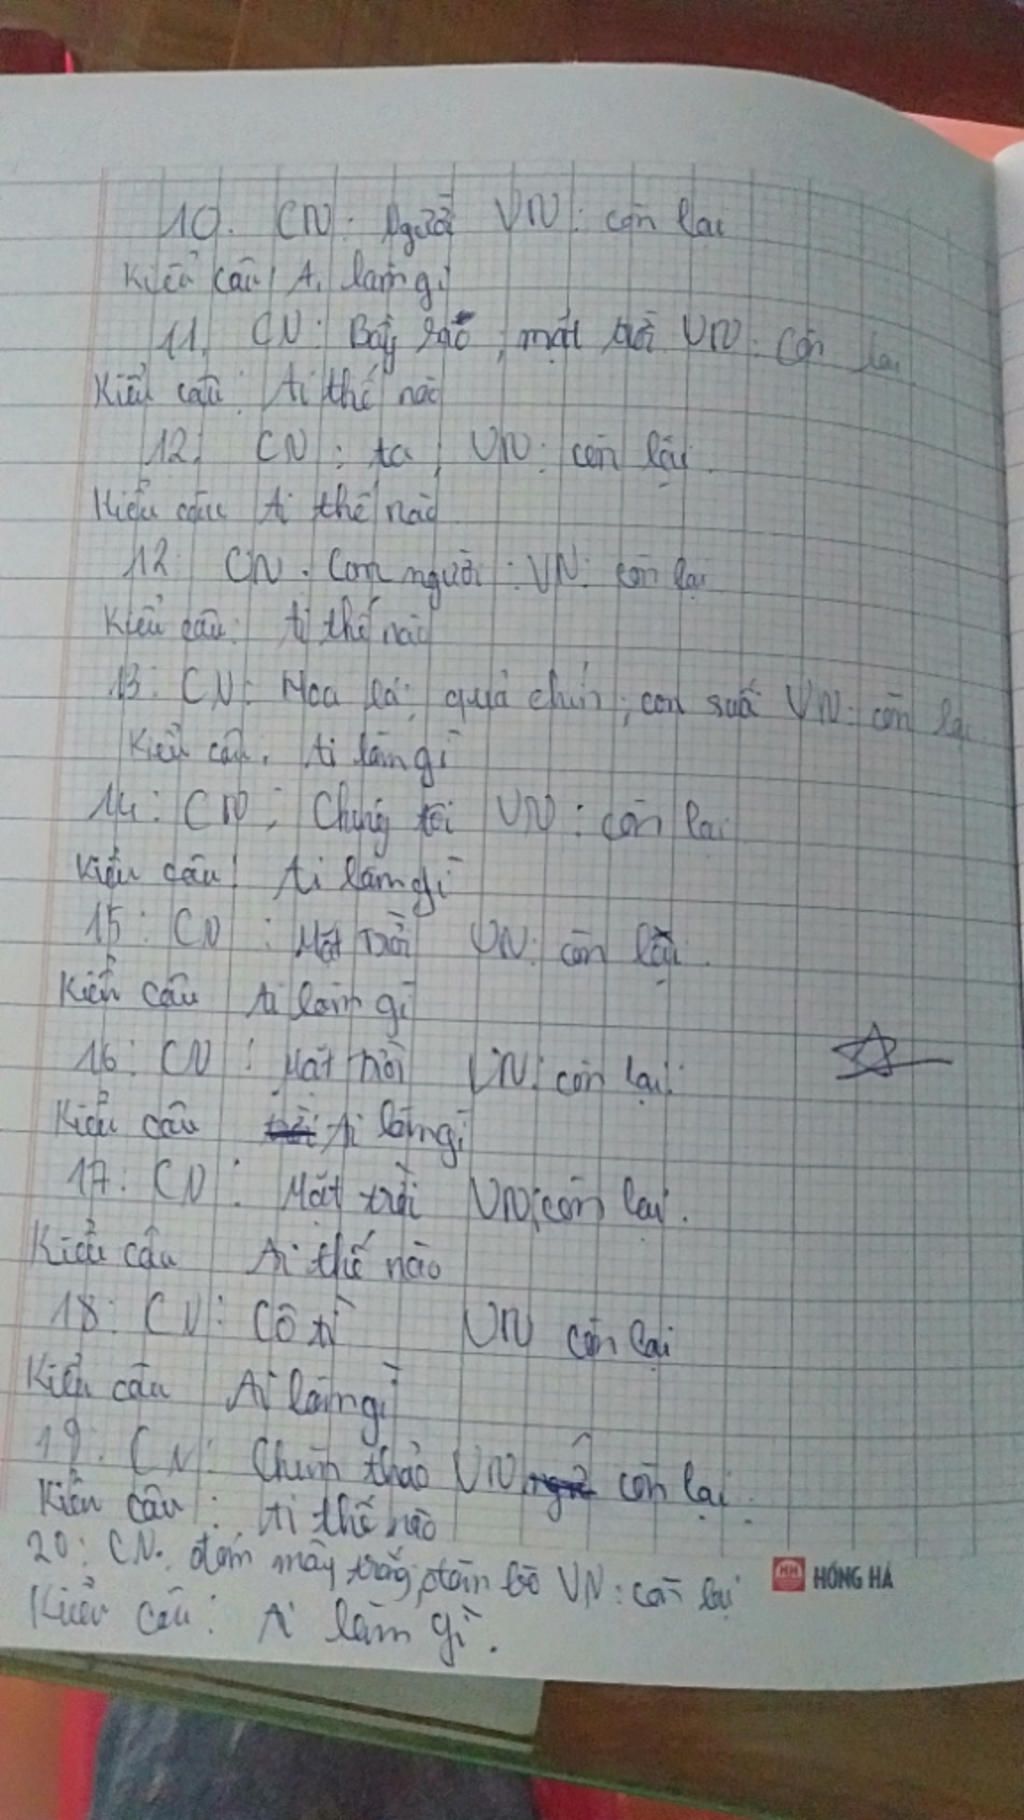 10. CN: Người VN: còn lại
Kiểu câu: Ai làm gì
11, CN: Bầy sáo, mặt trời VN: còn lại
Kiểu câu: Ai thế nào
12, CN: ta, VN: còn lại
Kiểu câu Ai thế nào
12: CN: Con người: VN: còn lại
Kiểu câu: Ai thế nào
13: CN: Hoa lá, quả chín, con suối VN: còn lại
Kiểu câu: Ai làm gì
14: CN: Chúng tôi VN: còn lại
Kiểu câu: Ai làm gì
15: CN: Mặt trời VN: còn lại.
Kiểu câu Ai làm gì
16: CN: Mặt trời VN: còn lại
Kiểu câu Ai làm gì
17: CN: Mặt trời VN: còn lại.
Kiểu câu Ai thế nào
18: CN: Cô VN còn lại
Kiểu câu Ai làm gì
19: CN: Chùm thảo VN còn lại.
Kiểu câu: Ai thế nào
20: CN. đám mây trắng, đàn bò VN: còn lại
Kiểu câu: Ai làm gì.
HỒNG HÀ